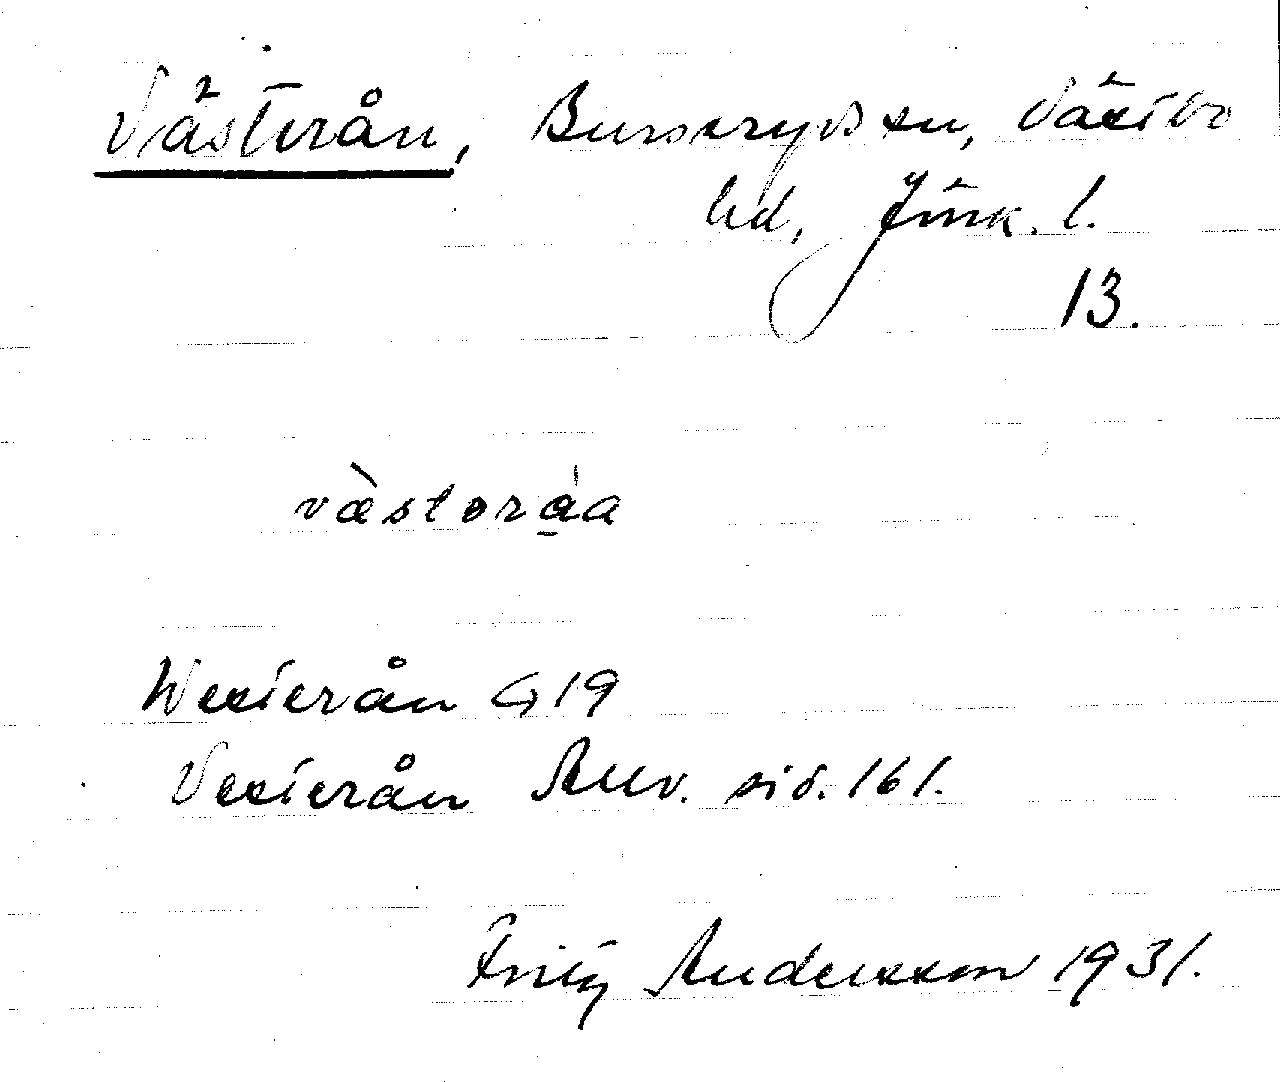 Västerån, Burseryds sn, Västbo
hd, Jönk. l.
13.
væ̀stora̠̍a
Westerån G19
Vesterån Auv. sid. 161.
Fritz Andersson 1931.